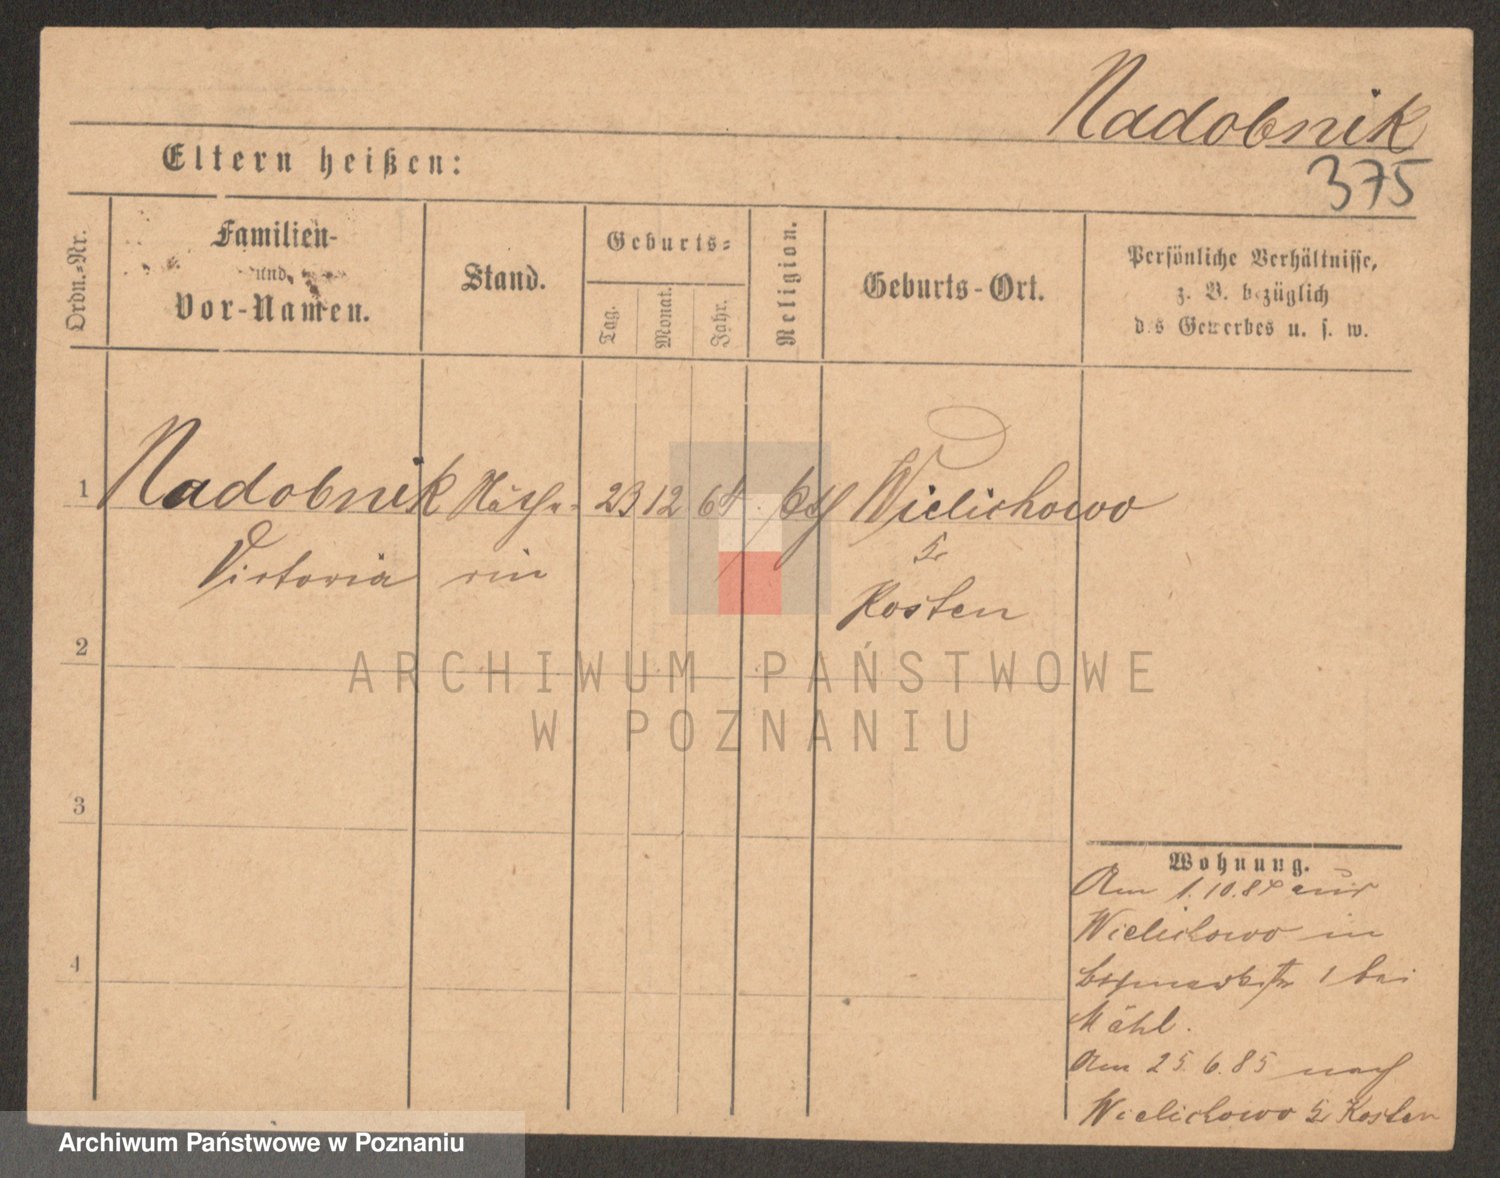 Nadobnik
375
Eltern heißen:
Ordn.-Nr.
Familien-
und
Vor-Namen.
Stand.
Geburts-
Tag.
Monat.
Jahr.
Religion.
Geburts-Ort.
Persönliche Verhältnisse,
z. B. bezüglich
des Gewerbes u. s. w.
1 Nadobnik Köch- 23 12 64 kth Wielichowo
Victoria rin Kr
Kosten
2
3
4
ARCHIWUM PAŃSTWOWE
W POZNANIU
Wohnung.
Am 1.10.84 aus
Wielichowo in
1 bei
Mähl.
Am 25.6.85 nach
Wielichowo Kr Kosten
Archiwum Państwowe w Poznaniu